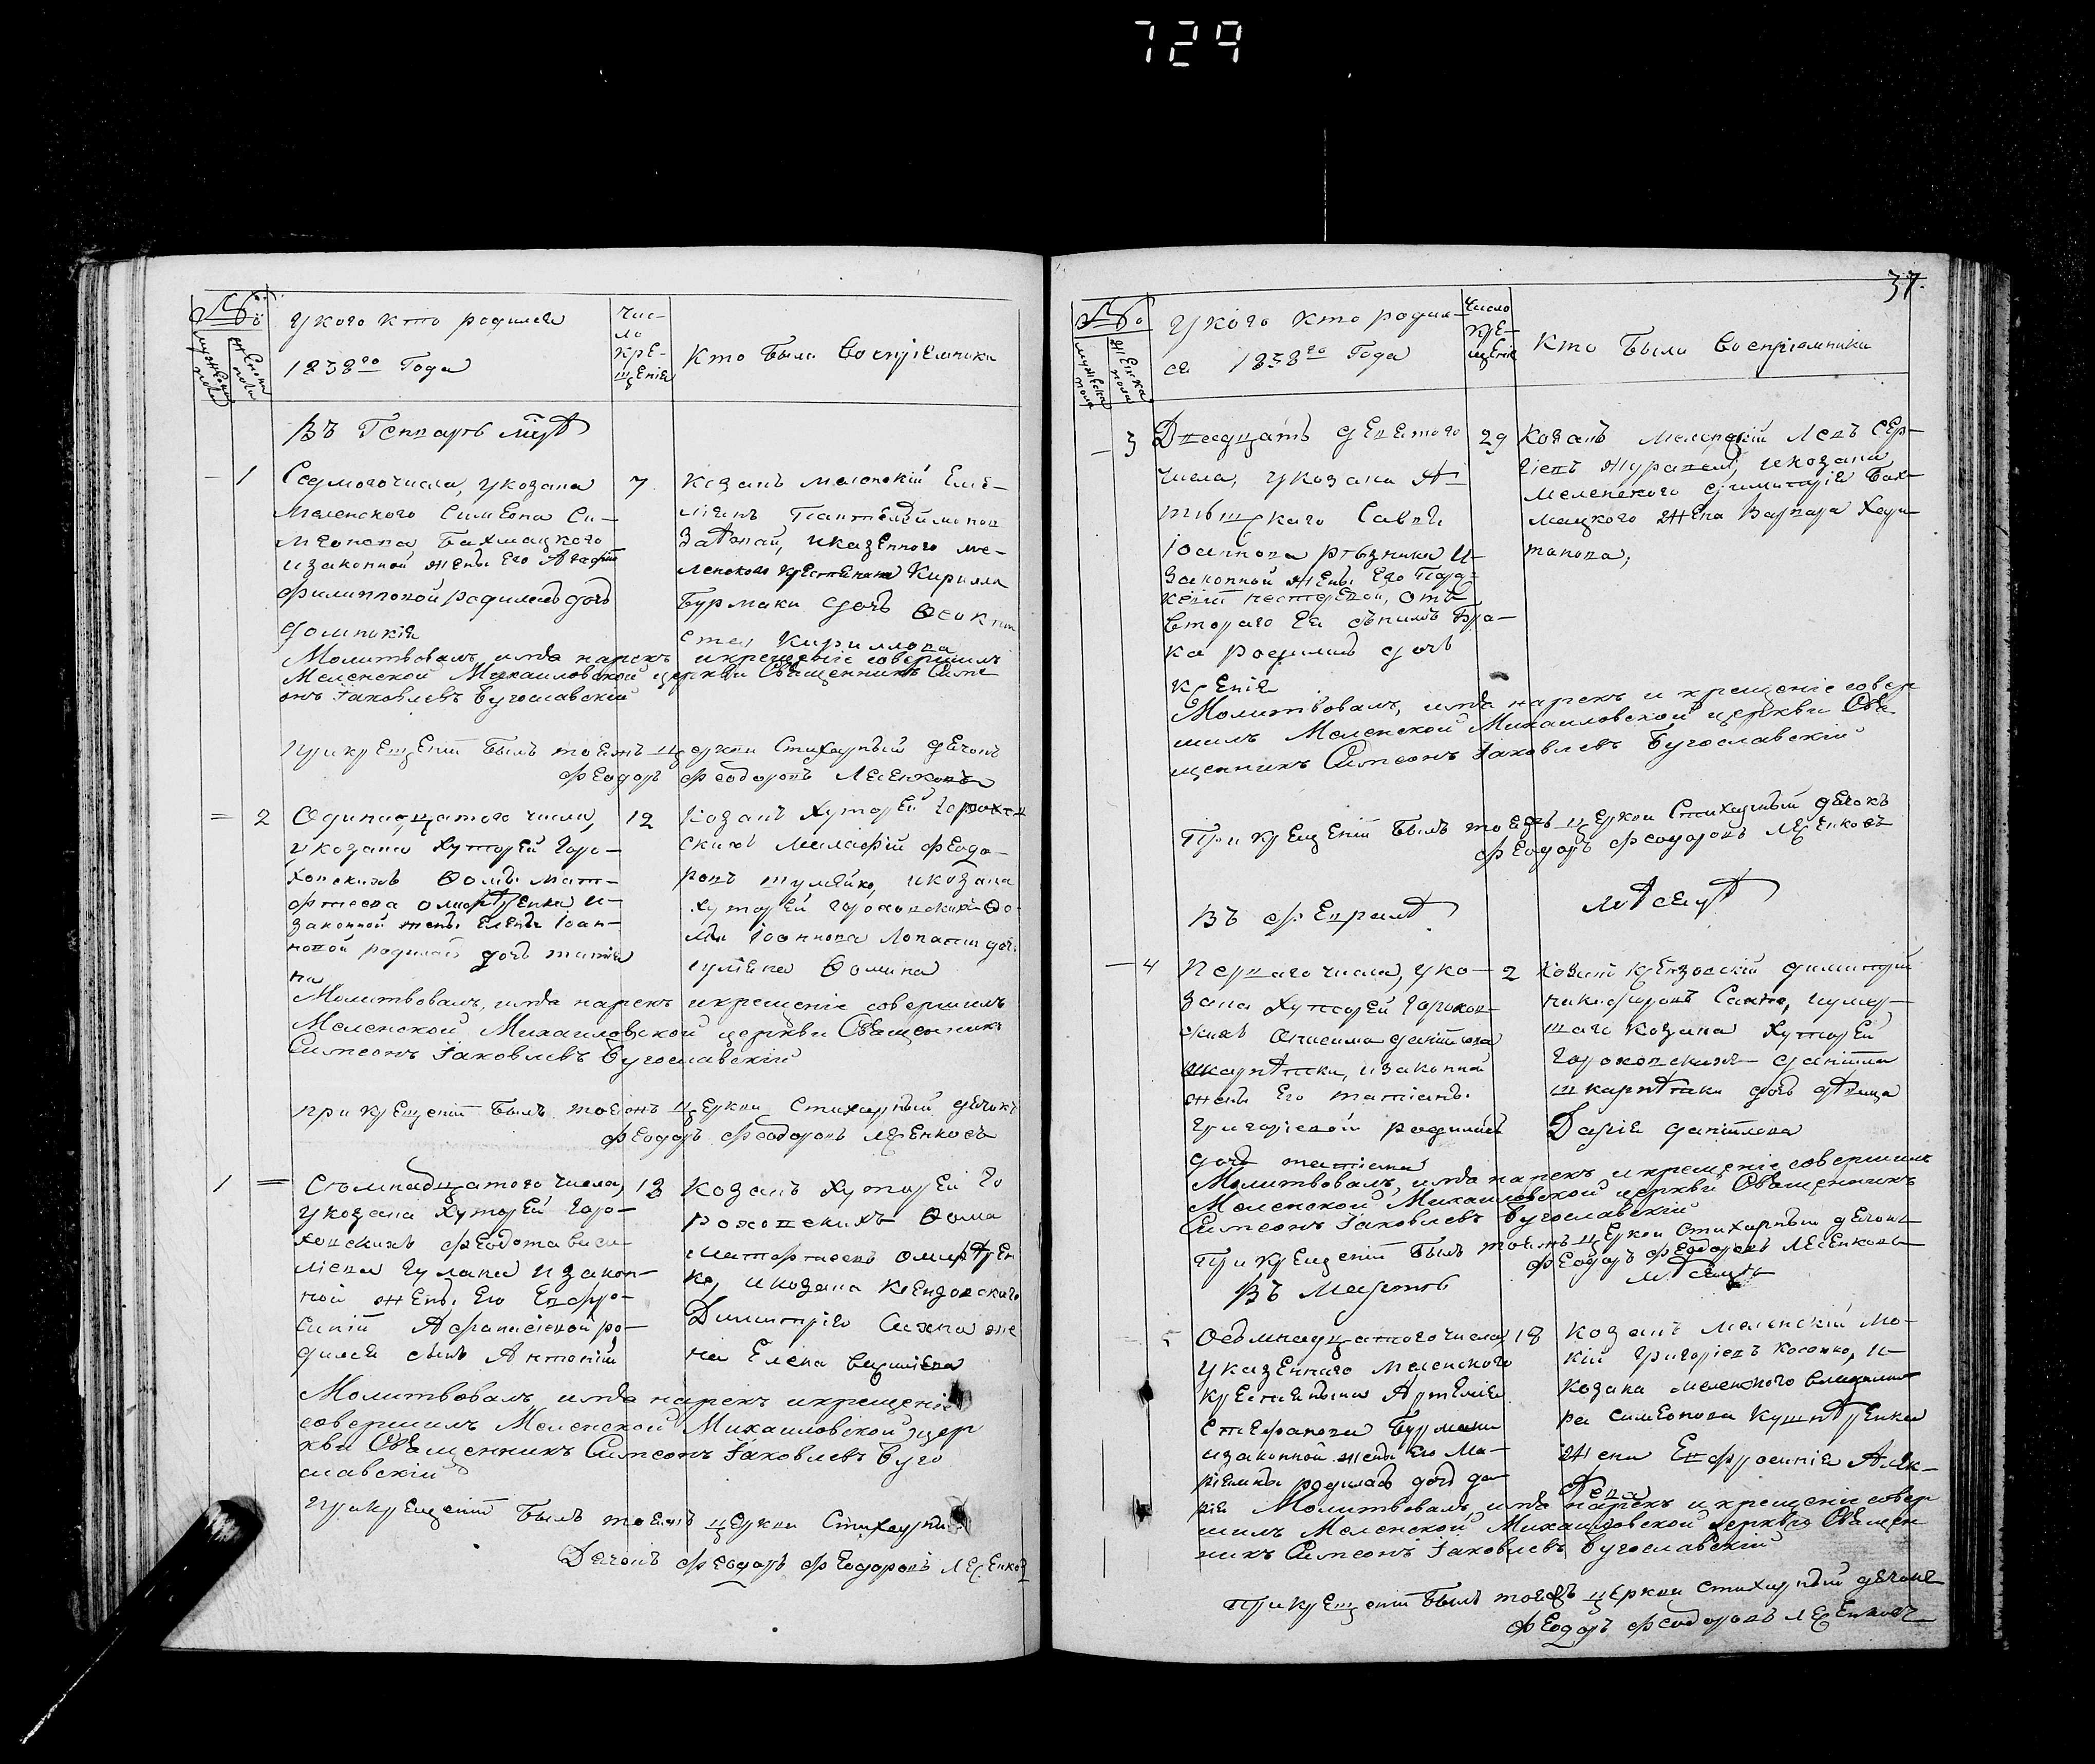 729
№
мужеска пола
женска пола
У кого кто родился
1838го Года
Чис-
ло
кре-
щенія
Кто были Воспріемники
Въ Генварѣ мцѣ
1
Седмого числа, у козака
Менского Симеона Си-
меонова Бахмацкого
и законной жены его Агафіи
Филипповой родилась дочь
Домникія
7
Козакъ менскій Еме-
ліанъ Пантелеймонов
и казенного ме-
нского крестянина Кирилла
Бурмаки дочь Ѳеокти
ста Кириллова
Молитвовалъ, имя нарекъ и крещеніе совершилъ
Менской Михаиловской церкви Священникъ Симе
онъ Іаковлевъ Бугославскій
При крещеніи былъ тоежъ церкви Стихарный дячокъ
Феодоръ Феодоровъ
2
Одинадцатого числа,
у козака хуторей Горо-
ховскихъ Ѳомы Мат-
фтеева и
законной жены Елены Іоан-
новой родилась дочь Татія
на
12
Козакъ хуторей Горохов
скихъ Феодо-
ровъ и козака
хуторей Гороховскихъ Ѳо-
мы Іоаннова дочь
Іуліана Ѳомина
Молитвовалъ, имя нарекъ и крещеніе совершилъ
Менской Михаиловской церкви Священникъ
Симеонъ Іаковлевъ Бугославскій
При крещеніи былъ тоежъ церкви Стихарный дячокъ
Феодоръ Феодоровъ
1
числа,
у козака хуторей Горо-
ховскихъ Феодота Васи-
ліева и закон-
ной жены его Евфро-
синіи Афанасіевой ро-
дился сынъ Антоній
13
Козакъ хуторей Го
роховскихъ Ѳома
Матфтеевъ
ко, и козака
Димитрія Сахна же
на Елена Василіева
Молитвовалъ, имя нарекъ и крещеніе
совершилъ Менской Михаиловской цер
кви Священникъ Симеонъ Іаковлевъ Буго
славскій
При крещеніи былъ тоежъ церкви Стихарный
Дячокъ Феодоръ Феодоровъ
37.
№
мужеска пола
женска пола
У кого кто родил-
ся 1838го Года
Число
кре-
щенія
Кто были Воспріемники
3
Двадцать девятого
числа, у козака
Саввы
Іоаннова Рѣзника и
законной жены его Пара-
кевіи Нестеровой, отъ
втораго бра-
ка родилась дочь
29
Козакъ менскій Левъ Сер-
гіевъ Журавель, и козака
менского Димитрія Бах-
мацкого жена Варвара Хари-
тонова;
Молитвовалъ, имя нарекъ и крещеніе совер
шилъ Менской Михаиловской церкви Свя
щенникъ Симеонъ Іаковлевъ Бугославскій
При крещеніи былъ тоежъ церкви Стихарный дячокъ
Феодоръ Феодоровъ
Въ Февралѣ
мѣсяцѣ
4
Первого числа, у ко-
зака хуторей Горохов-
скихъ Онисима Даніилова
и законной
жены его Татіаны
Григоріевой родилась
дочь Татіана
2
Димитрій
Никифоровъ Сахно, и умер-
шаго козака хуторей
Гороховскихъ Даніила
дочь дѣвица
Дарія Даніилова
Молитвовалъ, имя нарекъ и крещеніе совершилъ
Менской Михаиловской церкви Священникъ
Симеонъ Іаковлевъ Бугославскій
При крещеніи былъ тоежъ церкви Стихарный дячокъ
Феодоръ Феодоровъ
Въ Мартѣ
мѣсяцѣ
5
Осмнадцатого числа,
у казенного менского
крестянина Артемія
Стефанова Бурмаки
и законной жены его Ма-
родилась дочь Да-
рія
18
Козакъ менскій Мо-
кій Григоріевъ и
козака менского
ра Симеонова
жена Евфросинія Алек-
сѣева
Молитвовалъ, имя нарекъ и крещеніе совер
шилъ Менской Михаиловской церкви Священ
никъ Симеонъ Іаковлевъ Бугославскій
При крещеніи былъ тоежъ церкви Стихарный дячокъ
Феодоръ Феодоровъ